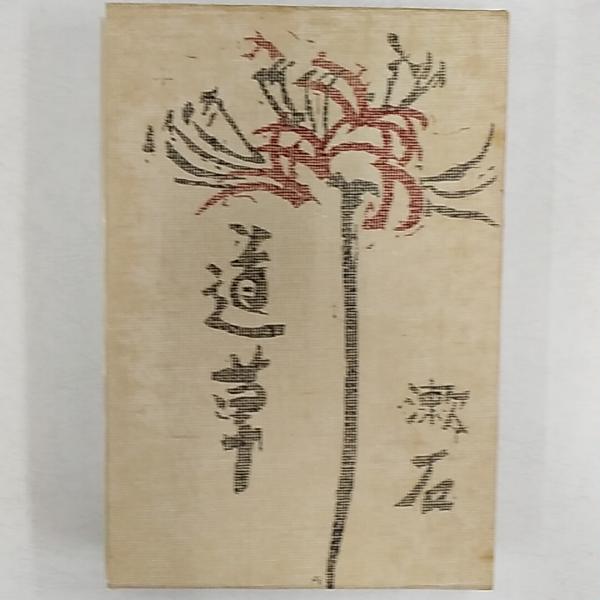 漱石
道草